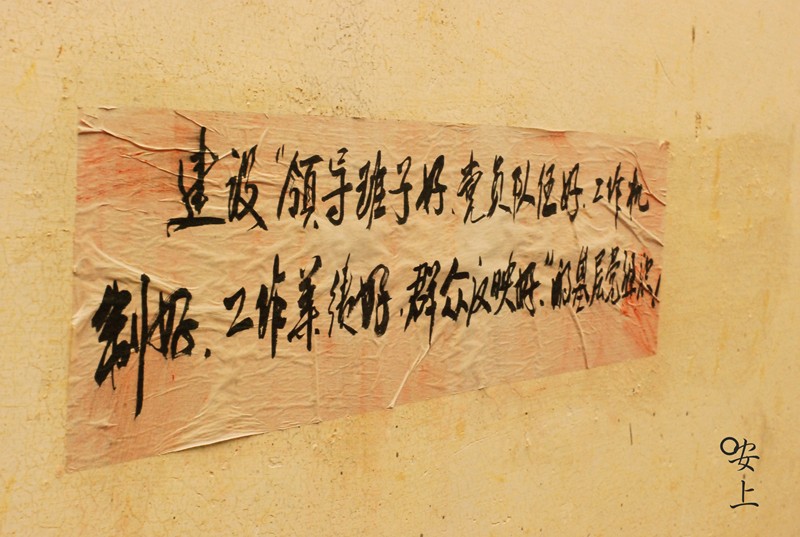 建设“领导班子好、党员队伍好、工作机
制好、工作业绩好、群众反映好”的基层党组织！
安上